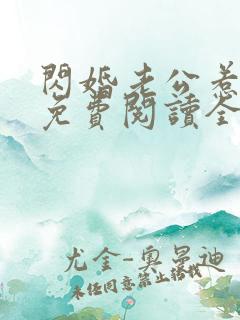 閃婚老公惹
免費閱讀全
尤金-奧曼迪
未经同意禁止转载